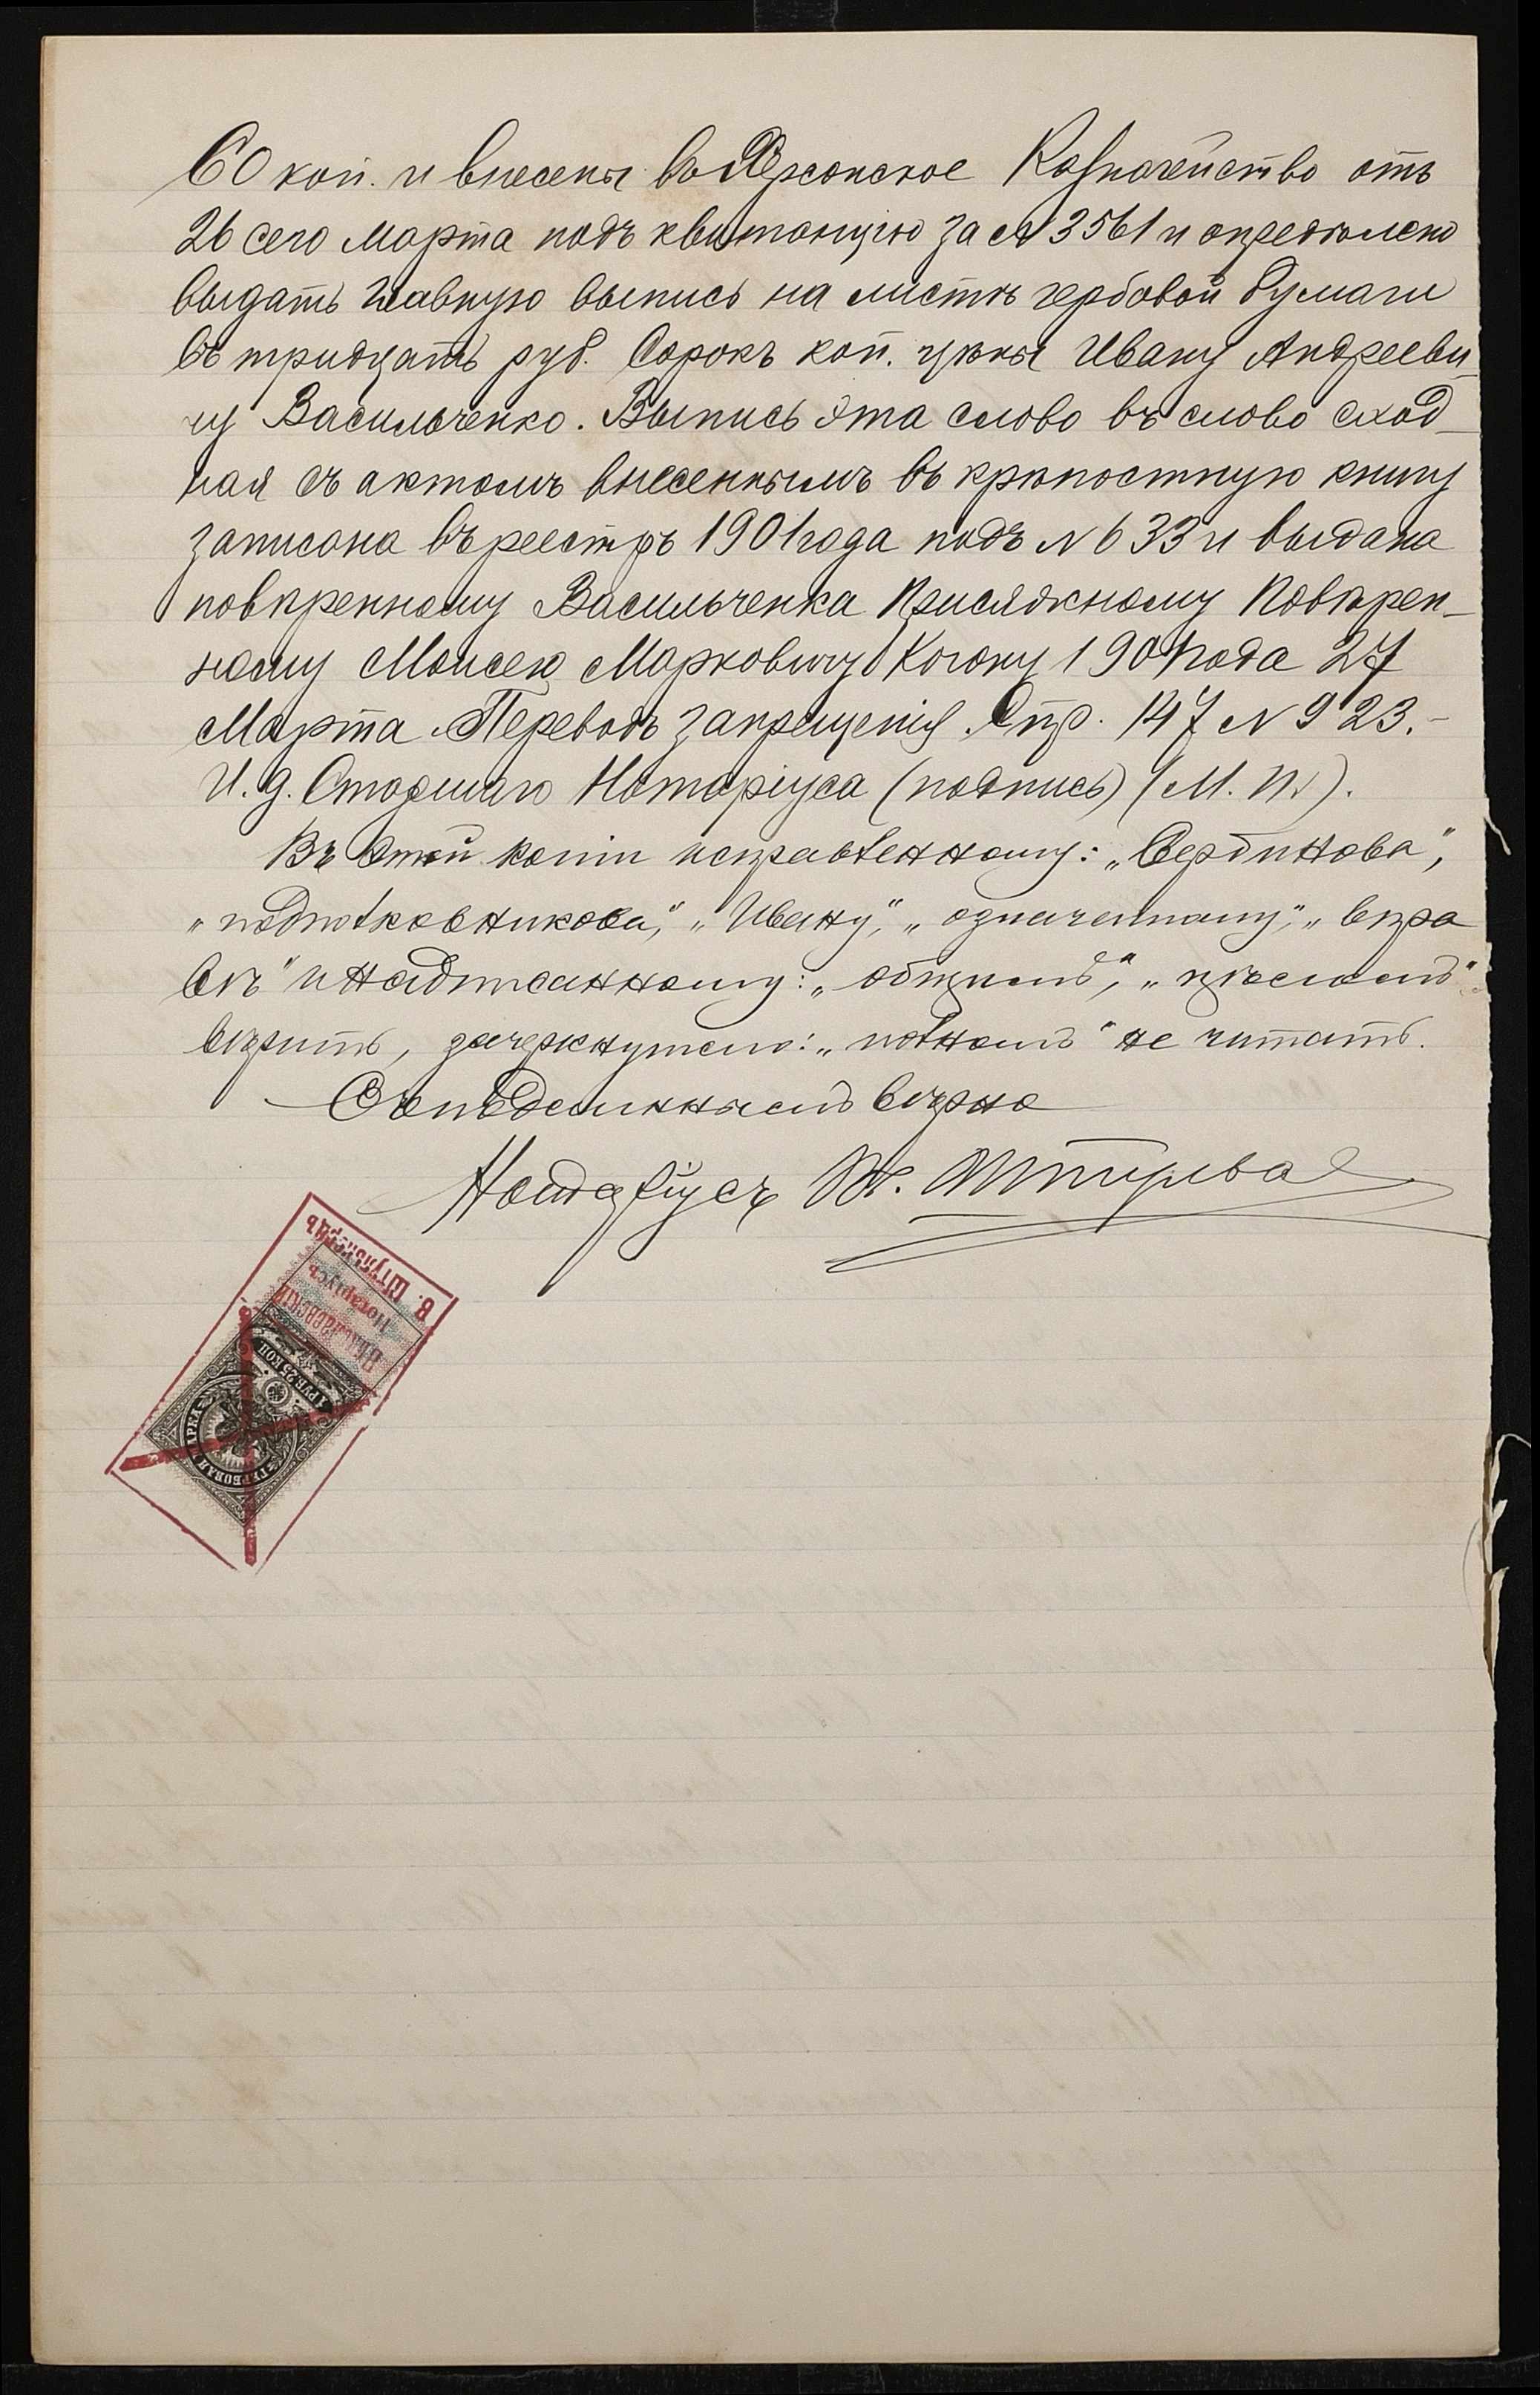 60 коп. и внесены въ Херсонское Казначейство отъ
26 сего Марта подъ квитанцію за № 3561 и опредѣлено
выдать главную выпись на листѣ гербовой бумаги
въ тридцать руб. Сорокъ коп. цѣны Ивану Андрееви-
чу Васильченко. Выпись эта слово въ слово сход-
ная съ актомъ внесеннымъ въ крѣпостную книгу
записана въ реестръ 1901 года подъ № 633 и выдана
повѣренному Васильченка Присяжному Повѣрен-
ному Моисею Марковичу Когону 1901 года 27
Марта. Переводъ запрещенія. Стр. 147 № 923.-
И. д. Старшаго Нотаріуса (подпись) (М. П.).
Въ этой копіи исправленному: „Сербинова",
„подполковникова", „Ивану", „означенному", „вправѣ
 " и надписанному: „общимъ", „
вѣрить, зачеркнутое: „полномъ" не читать.
Съ подлиннымъ вѣрно
Нотаріусъ
В. Штульбергъ
Нотаріусъ
Николаевскій
1 РУБ. 25 КОП.
ГЕРБОВАЯ МАРКА